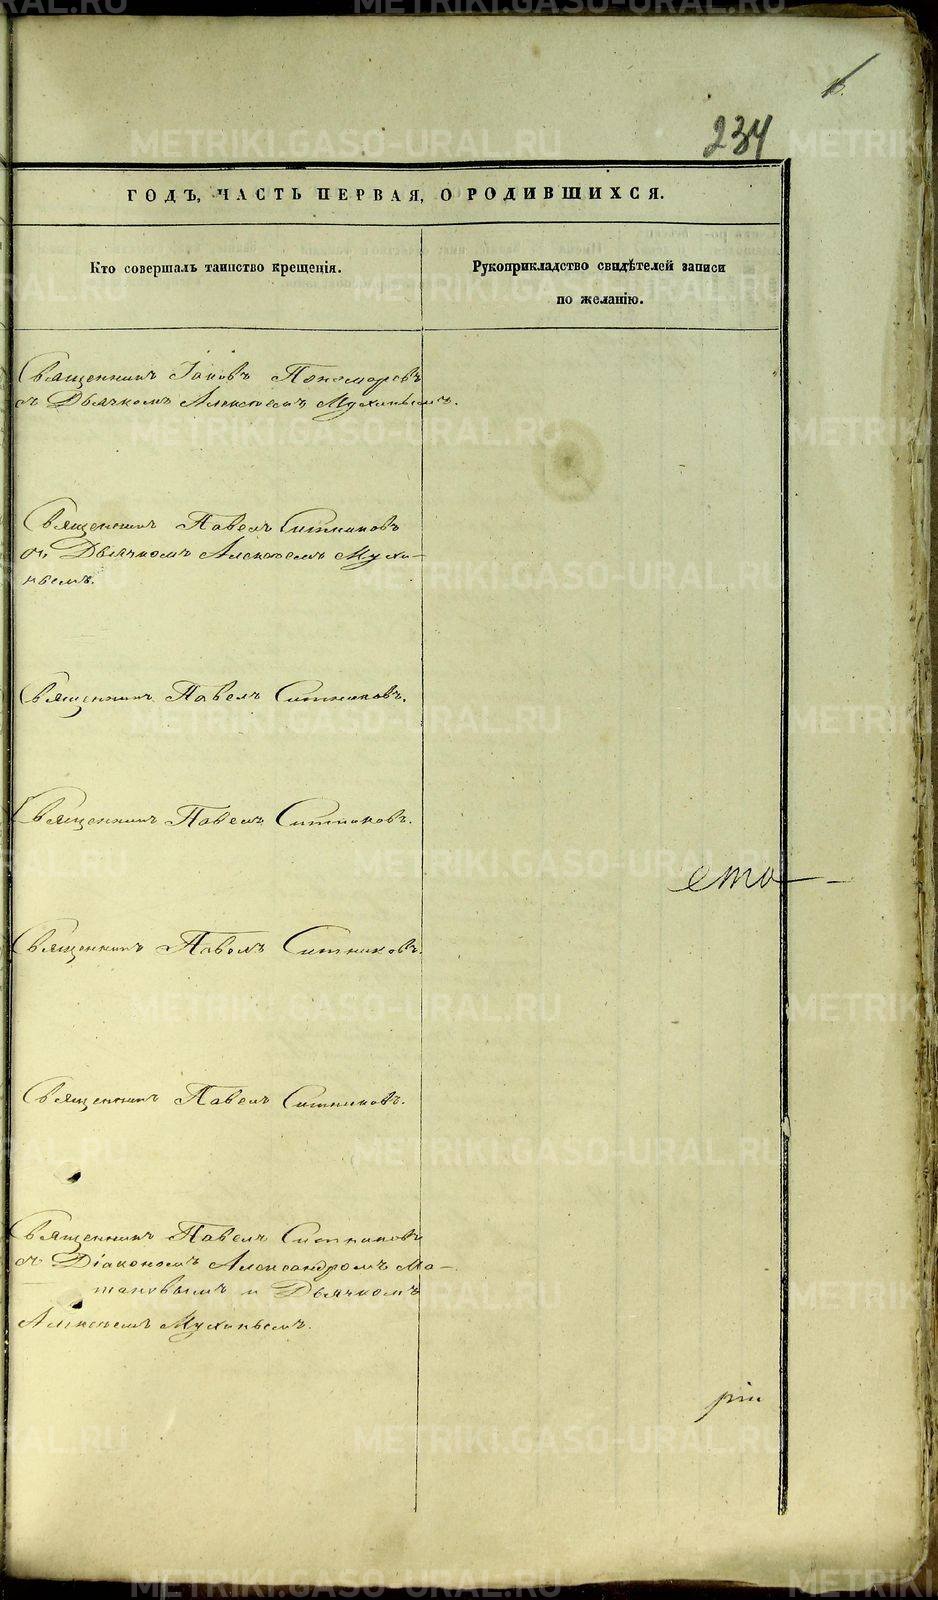 234
ГОДЪ, ЧАСТЬ ПЕРВАЯ, О РОДИВШИХСЯ.
Кто совершалъ таинство крещенія.
Рукоприкладство свидѣтелей записи
по желанію.
Священникъ Іаковъ Пономаревъ
съ Дьячкомъ Алексѣемъ Мухинымъ.
Священникъ Павелъ Ситниковъ
съ Дьячкомъ Алексѣемъ Мухи-
нымъ.
Священникъ Павелъ Ситниковъ.
Священникъ Павелъ Ситниковъ.
Священникъ Павелъ Ситниковъ.
Священникъ Павелъ Ситниковъ.
Священникъ Павелъ Ситниковъ
съ Діакономъ Александромъ Ма-
тановымъ и Дьячкомъ
Алексѣемъ Мухинымъ.
METRIKI.GASO-URAL.RU